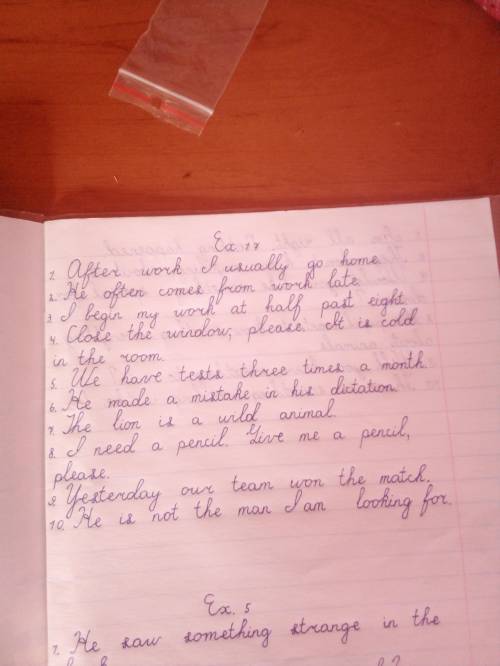 Ex. 11.
1. After work I usually go home.
2. He often comes from work late.
3. I begin my work at half past eight.
4. Close the window, please. It is cold
in the room.
5. We have tests three times a month.
6. He made a mistake in his dictation.
7. The lion is a wild animal.
8. I need a pencil. Give me a pencil,
please.
9. Yesterday our team won the match.
10. He is not the man I am looking for.
Ex. 5
1. He saw something strange in the